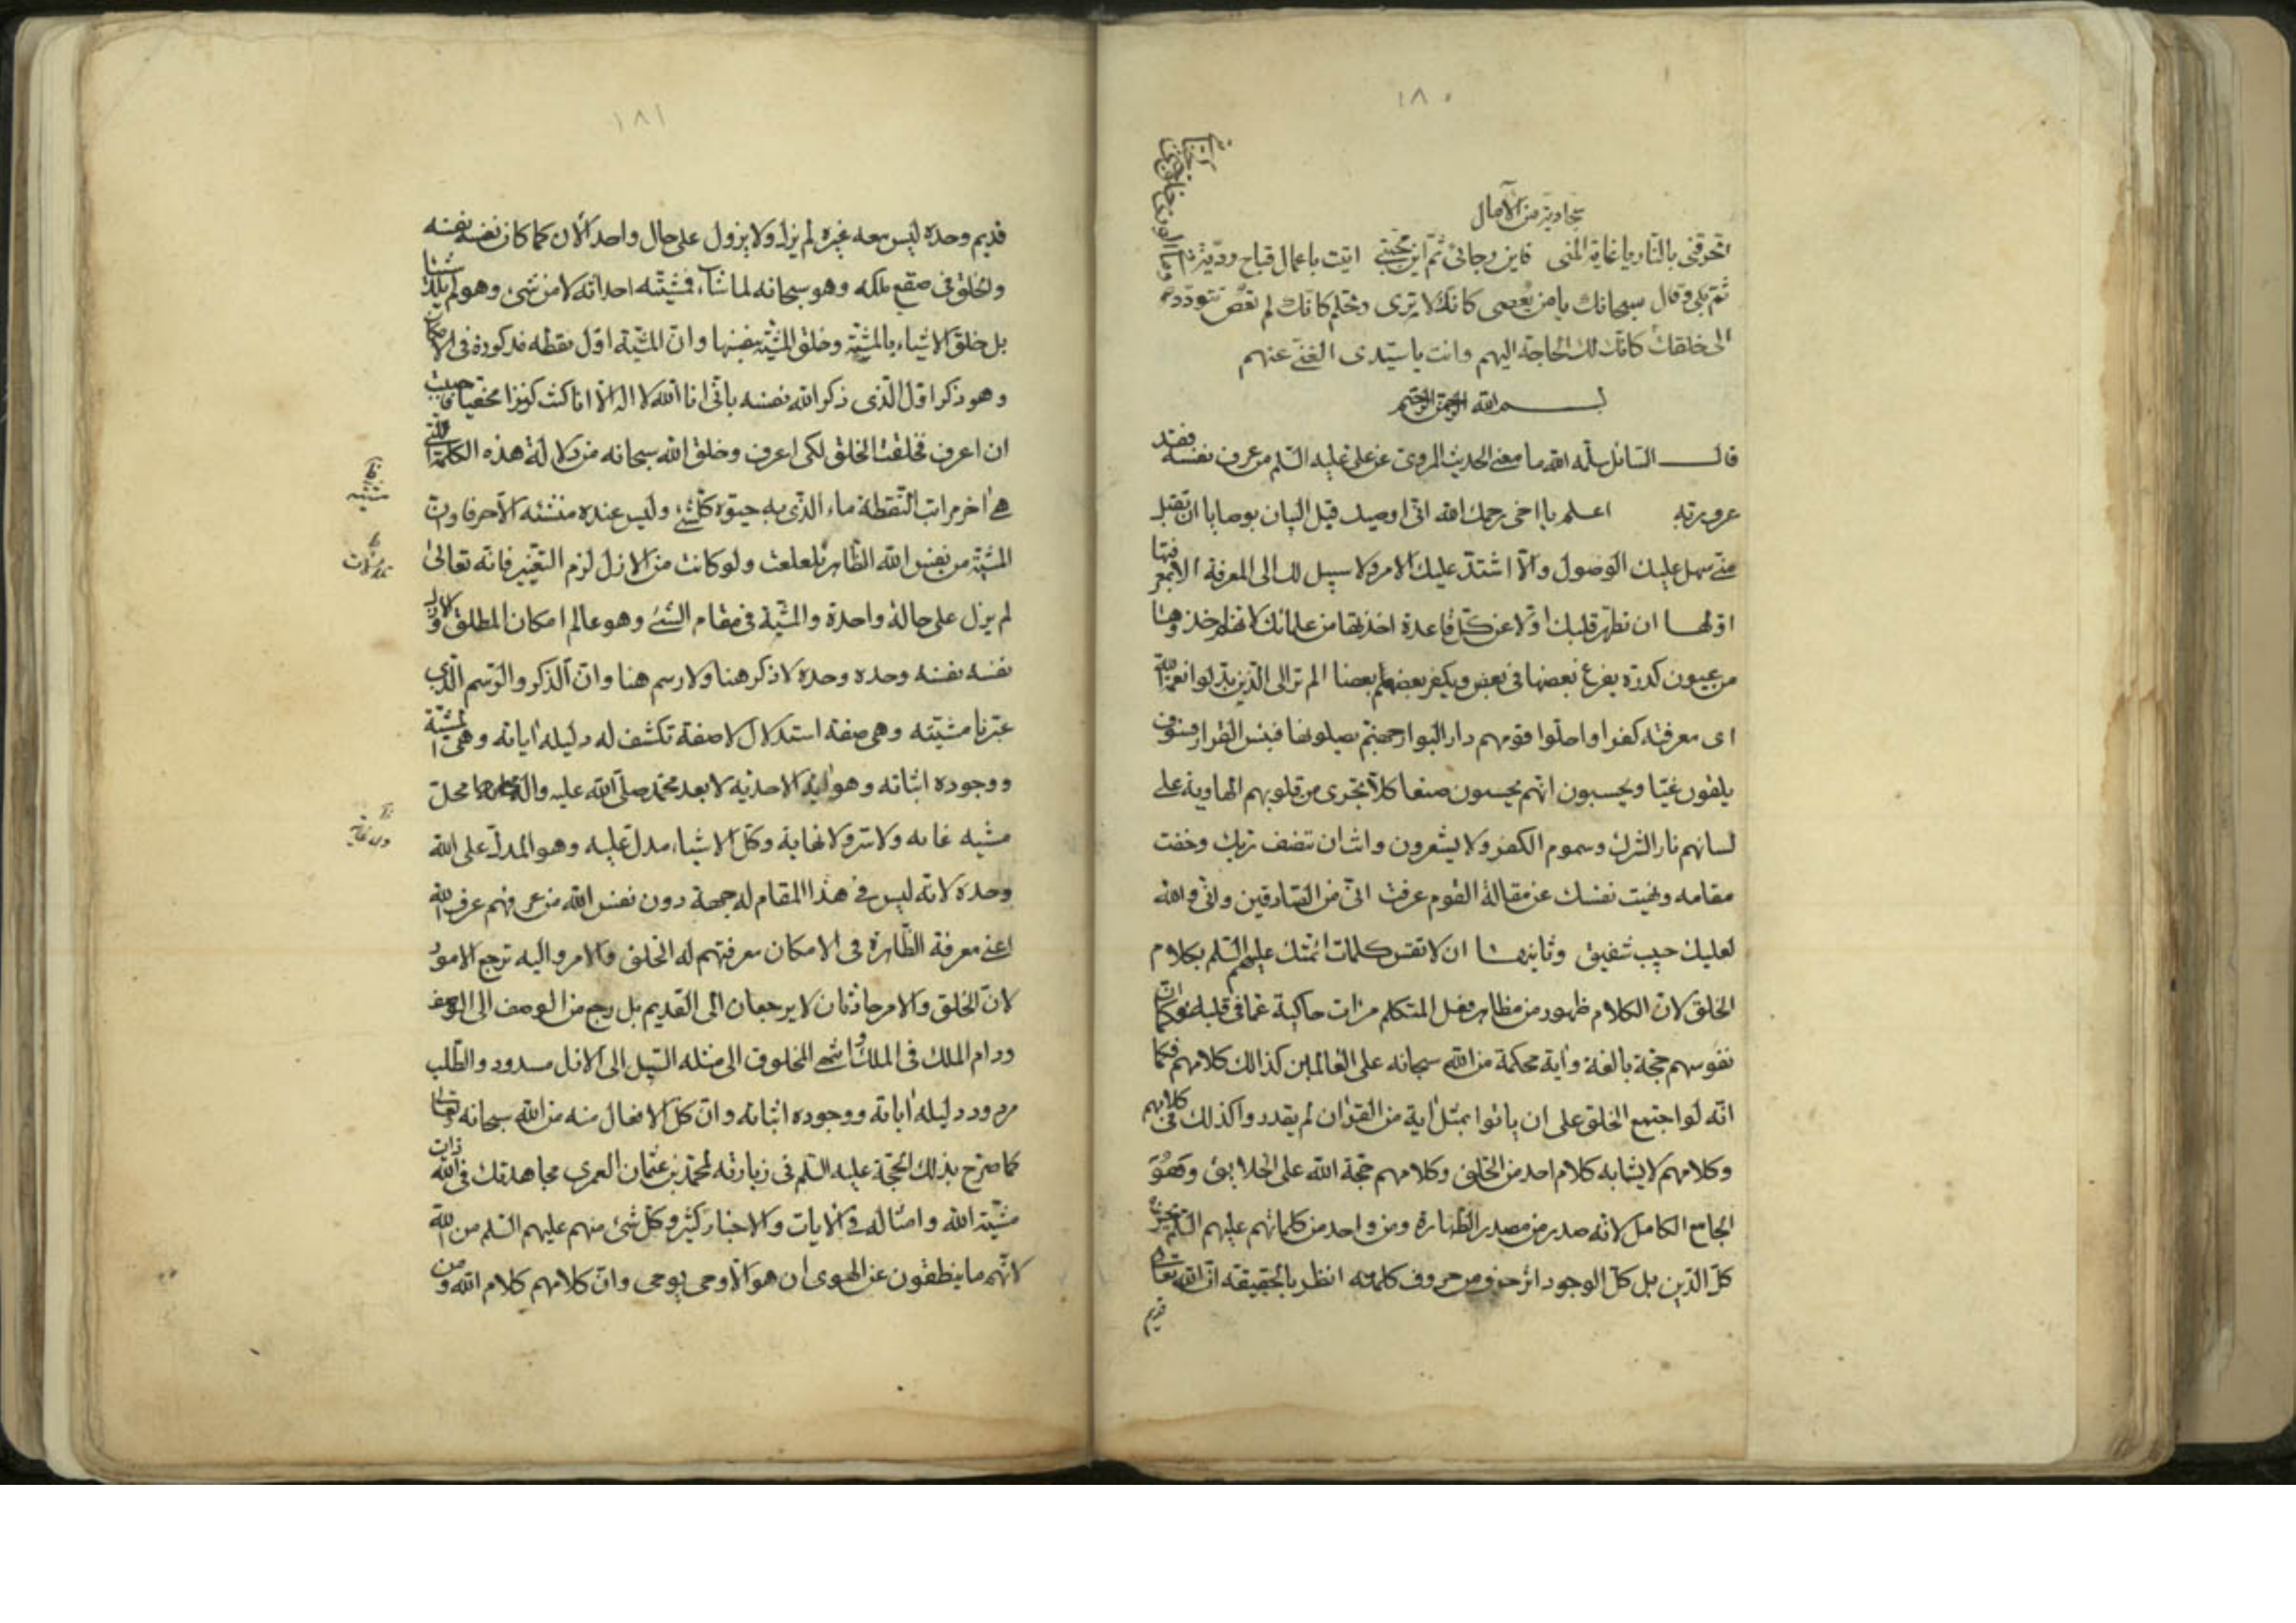 ١٨٠
من الآمال
اتحرقنی بالنار یا غایة المنی فاین رجائی ثم این محبتی اتیت باعمال قباح وما فی الوری خلق جنی
ثم بکی وقال سبحانک یا من یُعصی کانک لا تری وتحلم کانک لم تعص تتودد
الی خلقک کانک لک الحاجة الیهم وانت یا سیدی الغنی عنهم
بسم الله الرحمن الرحیم
قال السائل سلمه الله ما معنی الحدیث المروی عن علی علیه السلم من عرف نفسه فقد
عرف ربه اعلم یا اخی رحمک الله انی اوصیک قبل البیان بوصایا ان تقبل
منی سهل علیک الوصول والا اشتد علیک الامر ولا سبیل لک الی المعرفة الا بمعرفتها
اولها ان تطهر قلبک اولا عن کل قاعدة اخذتها من علمائک لانهم اخذوها
من عیون کدرة یفرغ بعضها فی بعض ویکفر بعضهم بعضا الم تر الی الذین بدلوا نعمة الله
ای معرفته کفرا واحلوا قومهم دار البوار جهنم یصلونها فبئس القرار فسوف
یلقون غیّا ویحسبون انهم یحسنون صنعا کلا تجری من قلوبهم الهاویة علی
لسانهم نار الشرک وسموم الکفر ولا یشعرون وانت ان تنصف ربک وخفت
مقامه ونهیت نفسک عن مقالة القوم عرفت انی من الصادقین وانی والله
لعلیک حبیب شفیق وثانیها ان لا تقس کلمات ائمتک علیهم السلم بکلام
الخلق لان الکلام ظهور من مظاهر فعل المتکلم مرات حاکیة عما فی قلبه فکما ان
نفوسهم حجة بالغة وآیة محکمة من الله سبحانه علی العالمین کذالک کلامهم فکما
انه لو اجتمع الخلق علی ان یاتوا بمثل آیة من القرآن لم یقدروا کذلک فی کلامهم
وکلامهم لا یشابه کلام احد من الخلق وکلامهم حجة الله علی الخلایق وَهُوَ
الجامع الکامل لانه صدر من مصدر الطهارة ومن واحد من کلماتهم علیهم السلم
کل الدین بل کل الوجود اثر حرف من حروف کلمته انظر بالحقیقة ان الله تعالی
قدیم
١٨١
قدیم وحده لیس معه غیره لم یزل ولا یزول علی حال واحد الآن کما کان نفسه نفسه
والخلق فی صقع ملکه وهو سبحانه لما شاء فمشیته احداثه لا من شیء وهو لم یلد شیئا
بل خلق الاشیاء بالمشیّة وخلق المشیّة بنفسها وان المشیّة اول نقطه مذکورة فی الامکان
وهو ذکر اول الذی ذکر الله نفسه بانی انا الله لا اله الا انا کنت کنزا مخفیا فاحببت
ان اعرف فخلقت الخلق لکی اعرف وخلق الله سبحانه من دلالة هذه الکلمة التی
هی آخر مراتب النقطة ماء الذی به حیوة کلشیء ولیس عنده مشیّته الآخر فاوت
المشیّة من نفس الله الظاهر تلعلعت ولو کانت من الازل لزم التغییر فانه تعالی
لم یزل علی حالة واحدة والمشیّة فی مقام الشیء وهو عالم امکان المطلق والازل
نفسه نفسه وحده وحده لا ذکر هنا ولا رسم هنا وان الذکر والرسم الذی
عبّرنا مشیّته وهی صفة استدلال لا صفة تکشف له دلیله آیاته وهی المشیّة
ووجوده اثباته وهو آیة الاحدیه لا بعد محمد صلی الله علیه وآله محل
مشیه غایه ولا نهایة وکل الاشیاء مدل علیه وهو المدل علی الله
وحده لانه لیس فی هذا المقام له جهة دون نفس الله من عرفهم عرف الله
اعنی معرفة الظاهرة فی الامکان معرفتهم له الخلق والامر والیه ترجع الامور
لان الخلق والامر حادثان لا یرجعان الی القدیم بل رجع من الوصف الی الوصف
ودام الملک فی الملک وانتهی المخلوق الی مثله السبیل الی الازل مسدود والطلب
مردود دلیله آیاته ووجوده اثباته وان کل الافعال منه من الله سبحانه وتعالی
کما صرح بذلک الحجة علیه السلم فی زیارته لمحمد بن عثمان العمری مجاهدتک فی الله ذات
مشیّة الله وامثاله فی الآیات والاخبار کثیر وکل شیء منهم علیهم السلم من الله
لانهم ما ینطقون عن الهوی ان هو الا وحی یوحی وان کلامهم کلام الله ومن